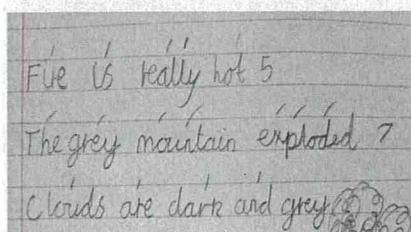 Fire is really hot 5
The grey mountain exploded 7
Clouds are dark and grey